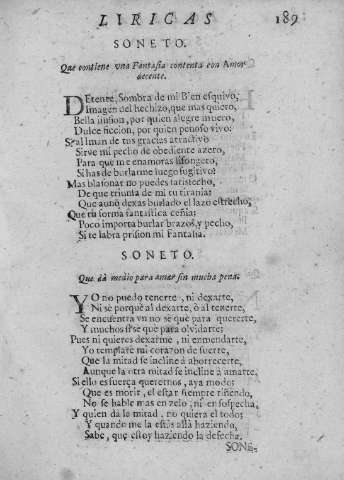 LIRICAS 189
SONETO.
Que contiene vna Fantasia contenta con Amor
decente.
DEtente, Sombra de mi Bien esquivo,
Imagen del hechizo, que mas quiero,
Bella ilusion, por quien alegre muero,
Dulce ficcion, por quien penoso vivo:
Si al Iman de tus gracias atractivo
Sirve mi pecho de obediente azero,
Para que me enamoras lisongero,
Si has de burlarme luego fugitivo?
Mas blasonar no puedes satisfecho,
De que triunfa de mi tu tirania:
Que aunq̃ dexas burlado el lazo estrecho,
Que tu forma fantastica ceñia:
Poco importa burlar brazos, y pecho,
Si te labra prision mi Fantasia.
SONETO.
Que dà medio para amar sin mucha pena.
YO no puedo tenerte, ni dexarte,
Ni sè porquè al dexarte, ò al tenerte,
Se encuentra vn no se què para quererte,
Y muchos si se què para olvidarte:
Pues ni quieres dexarme, ni enmendarte,
Yo templarè mi corazon de suerte,
Que la mitad se incline à aborrecerte,
Aunque la otra mitad se incline à amarte,
Si ello es fuerça querernos, aya modo;
Que es morir, el estar siempre riñendo,
No se hable mas en zelo, ni en sospecha,
Y quien dà la mitad, no quiera el todo;
Y quando me la estàs allà haziendo,
Sabe, que estoy haziendo la desecha.
SONE-